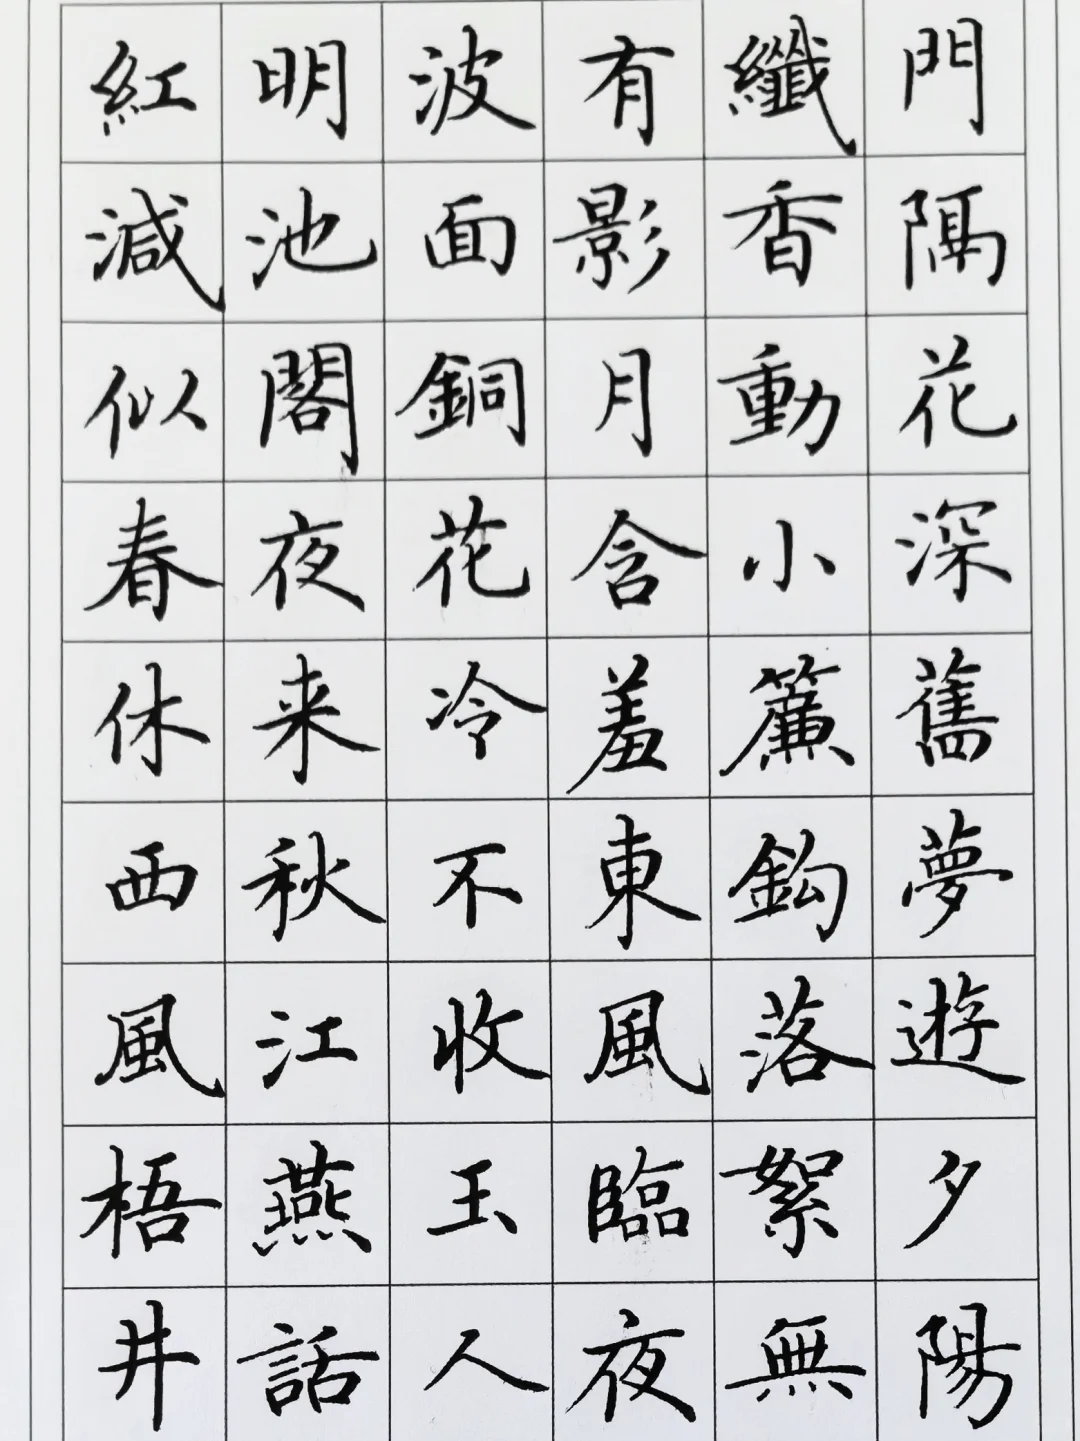 門隔花深舊夢遊夕陽
纖香動小簾鈎落絮無
有影月含羞東風臨夜
波面銅花冷不收玉人
明池閣夜来秋江燕話
紅減似春休西風梧井